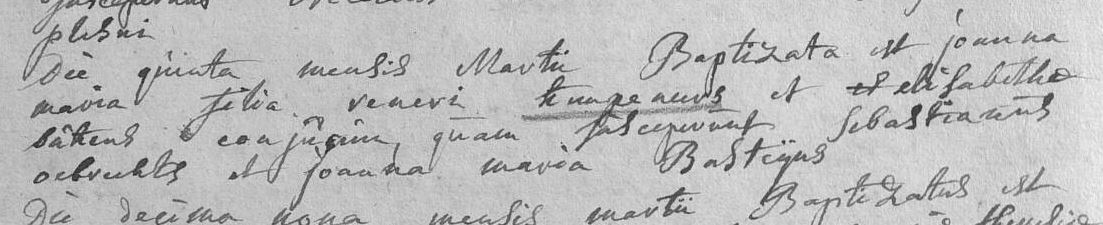 susceperunt
plebni
Die quinta mensis Martii Baptizata est joanna
maria filia reneri knapeneurs et et elisabetha
bâtens conjugum, quam susceperunt sebastianus
oebrechts et joanna maria Bastijns
Die decima nona mensis martii Baptizatus est